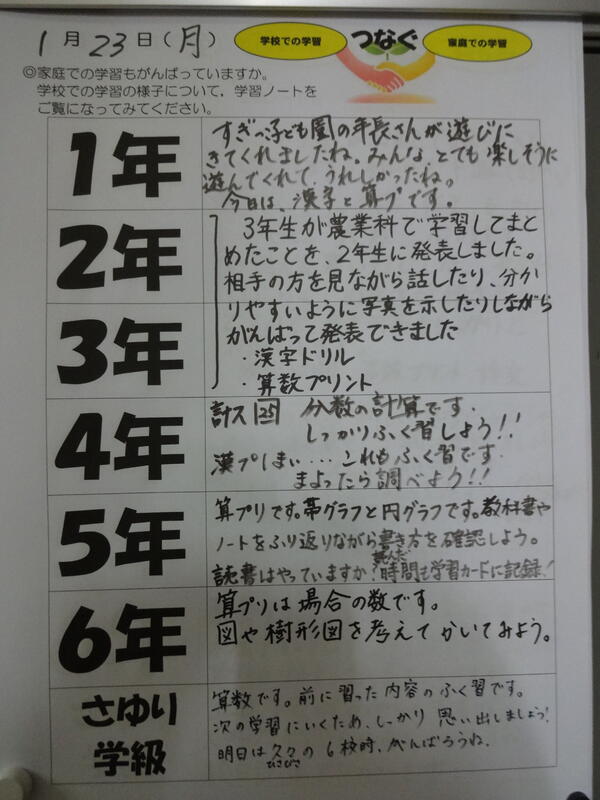 1月23日(月)
学校での学習 つなぐ 家庭での学習
◎家庭での学習もがんばっていますか。
学校での学習の様子について,学習ノートを
ご覧になってみてください。
1年
すぎっ子ども園の年長さんが遊びに
きてくれましたね。みんな、とても楽しそうに
遊んでくれて、うれしかったね。
今日は、漢字と算プです。
2年
3年
3年生が農業科で学習してまと
めたことを、2年生に発表しました。
相手の方を見ながら話したり、分か
りやすいように写真を示したりしながら
がんばって発表できました
・漢字ドリル
・算数プリント
4年
計ス25 分数の計算です.
しっかりふく習しよう!!
漢プしまい…これもふく習です.
まよったら調べよう!!
5年
算プリです。帯グラフと円グラフです。教科書や
ノートをふり返りながら書き方を確認しよう。
読んだ
読書はやっていますか?時間も学習カードに記録!
6年
算プリは場合の数です。
図や樹形図を考えてかいてみよう。
さゆり
学級
算数です。前に習った内容のふく習です。
次の学習にいくため、しっかり思い出しましょう!
明日は久々の6校時、がんばろうね.
ひさびさ